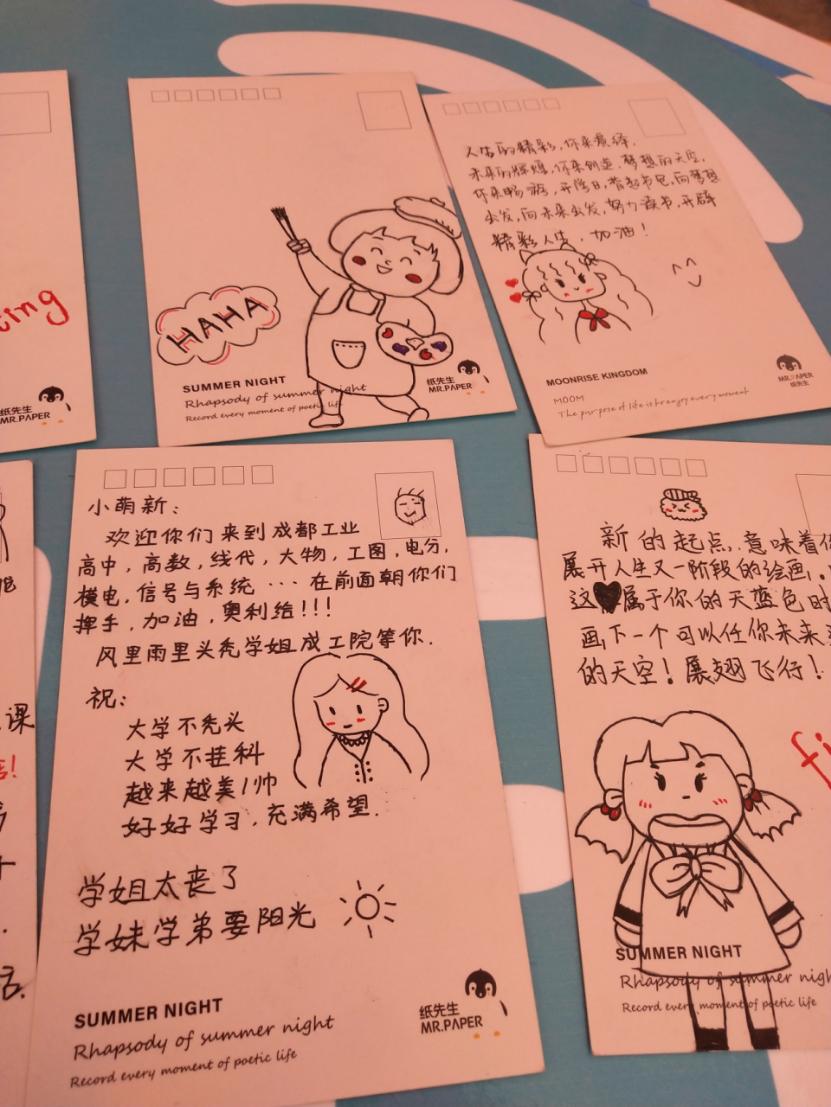 ting
纸先生
MR.PAPER
HAHA
SUMMER NIGHT
Rhapsody of summer night
Record every moment of poetic life
纸先生
MR.PAPER
人生的精彩,你来演绎.
未来的辉煌,你来创造.梦想的天空,
你来畅游,开学日,背起书包,向梦想
出发,向未来出发,努力读书,开辟
精彩人生,加油!
MOONRISE KINGDOM
MOOM
The purpose of life is to enjoy every moment
MR.PAPER
纸先生
课
小萌新:
欢迎你们来到成都工业
高中,高数,线代,大物,工图,电分,
模电,信号与系统…在前面朝你们
挥手,加油,奥利给!!!
风里雨里头秃学姐成工院等你.
祝:
大学不秃头
大学不挂科
越来越美/帅
好好学习,充满希望.
学姐太丧了
学妹学弟要阳光
SUMMER NIGHT
Rhapsody of summer night
Record every moment of poetic life
纸先生
MR.PAPER
新的起点,意味着你
展开人生又一阶段的绘画,
这属于你的天蓝色时
画下一个可以任你未来
的天空!展翅飞行!
fi
SUMMER NIGHT
Rhapsody of summer nigh
Record every moment of poetic life